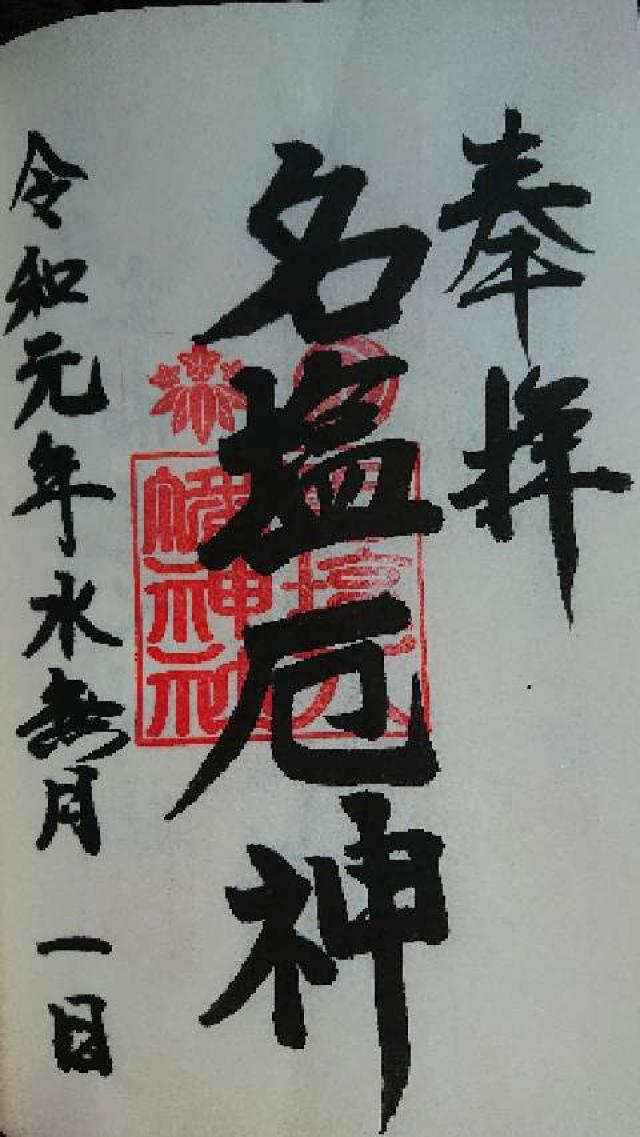 奉拝
名塩厄神
名塩八幡神社
令和元年水無月一日